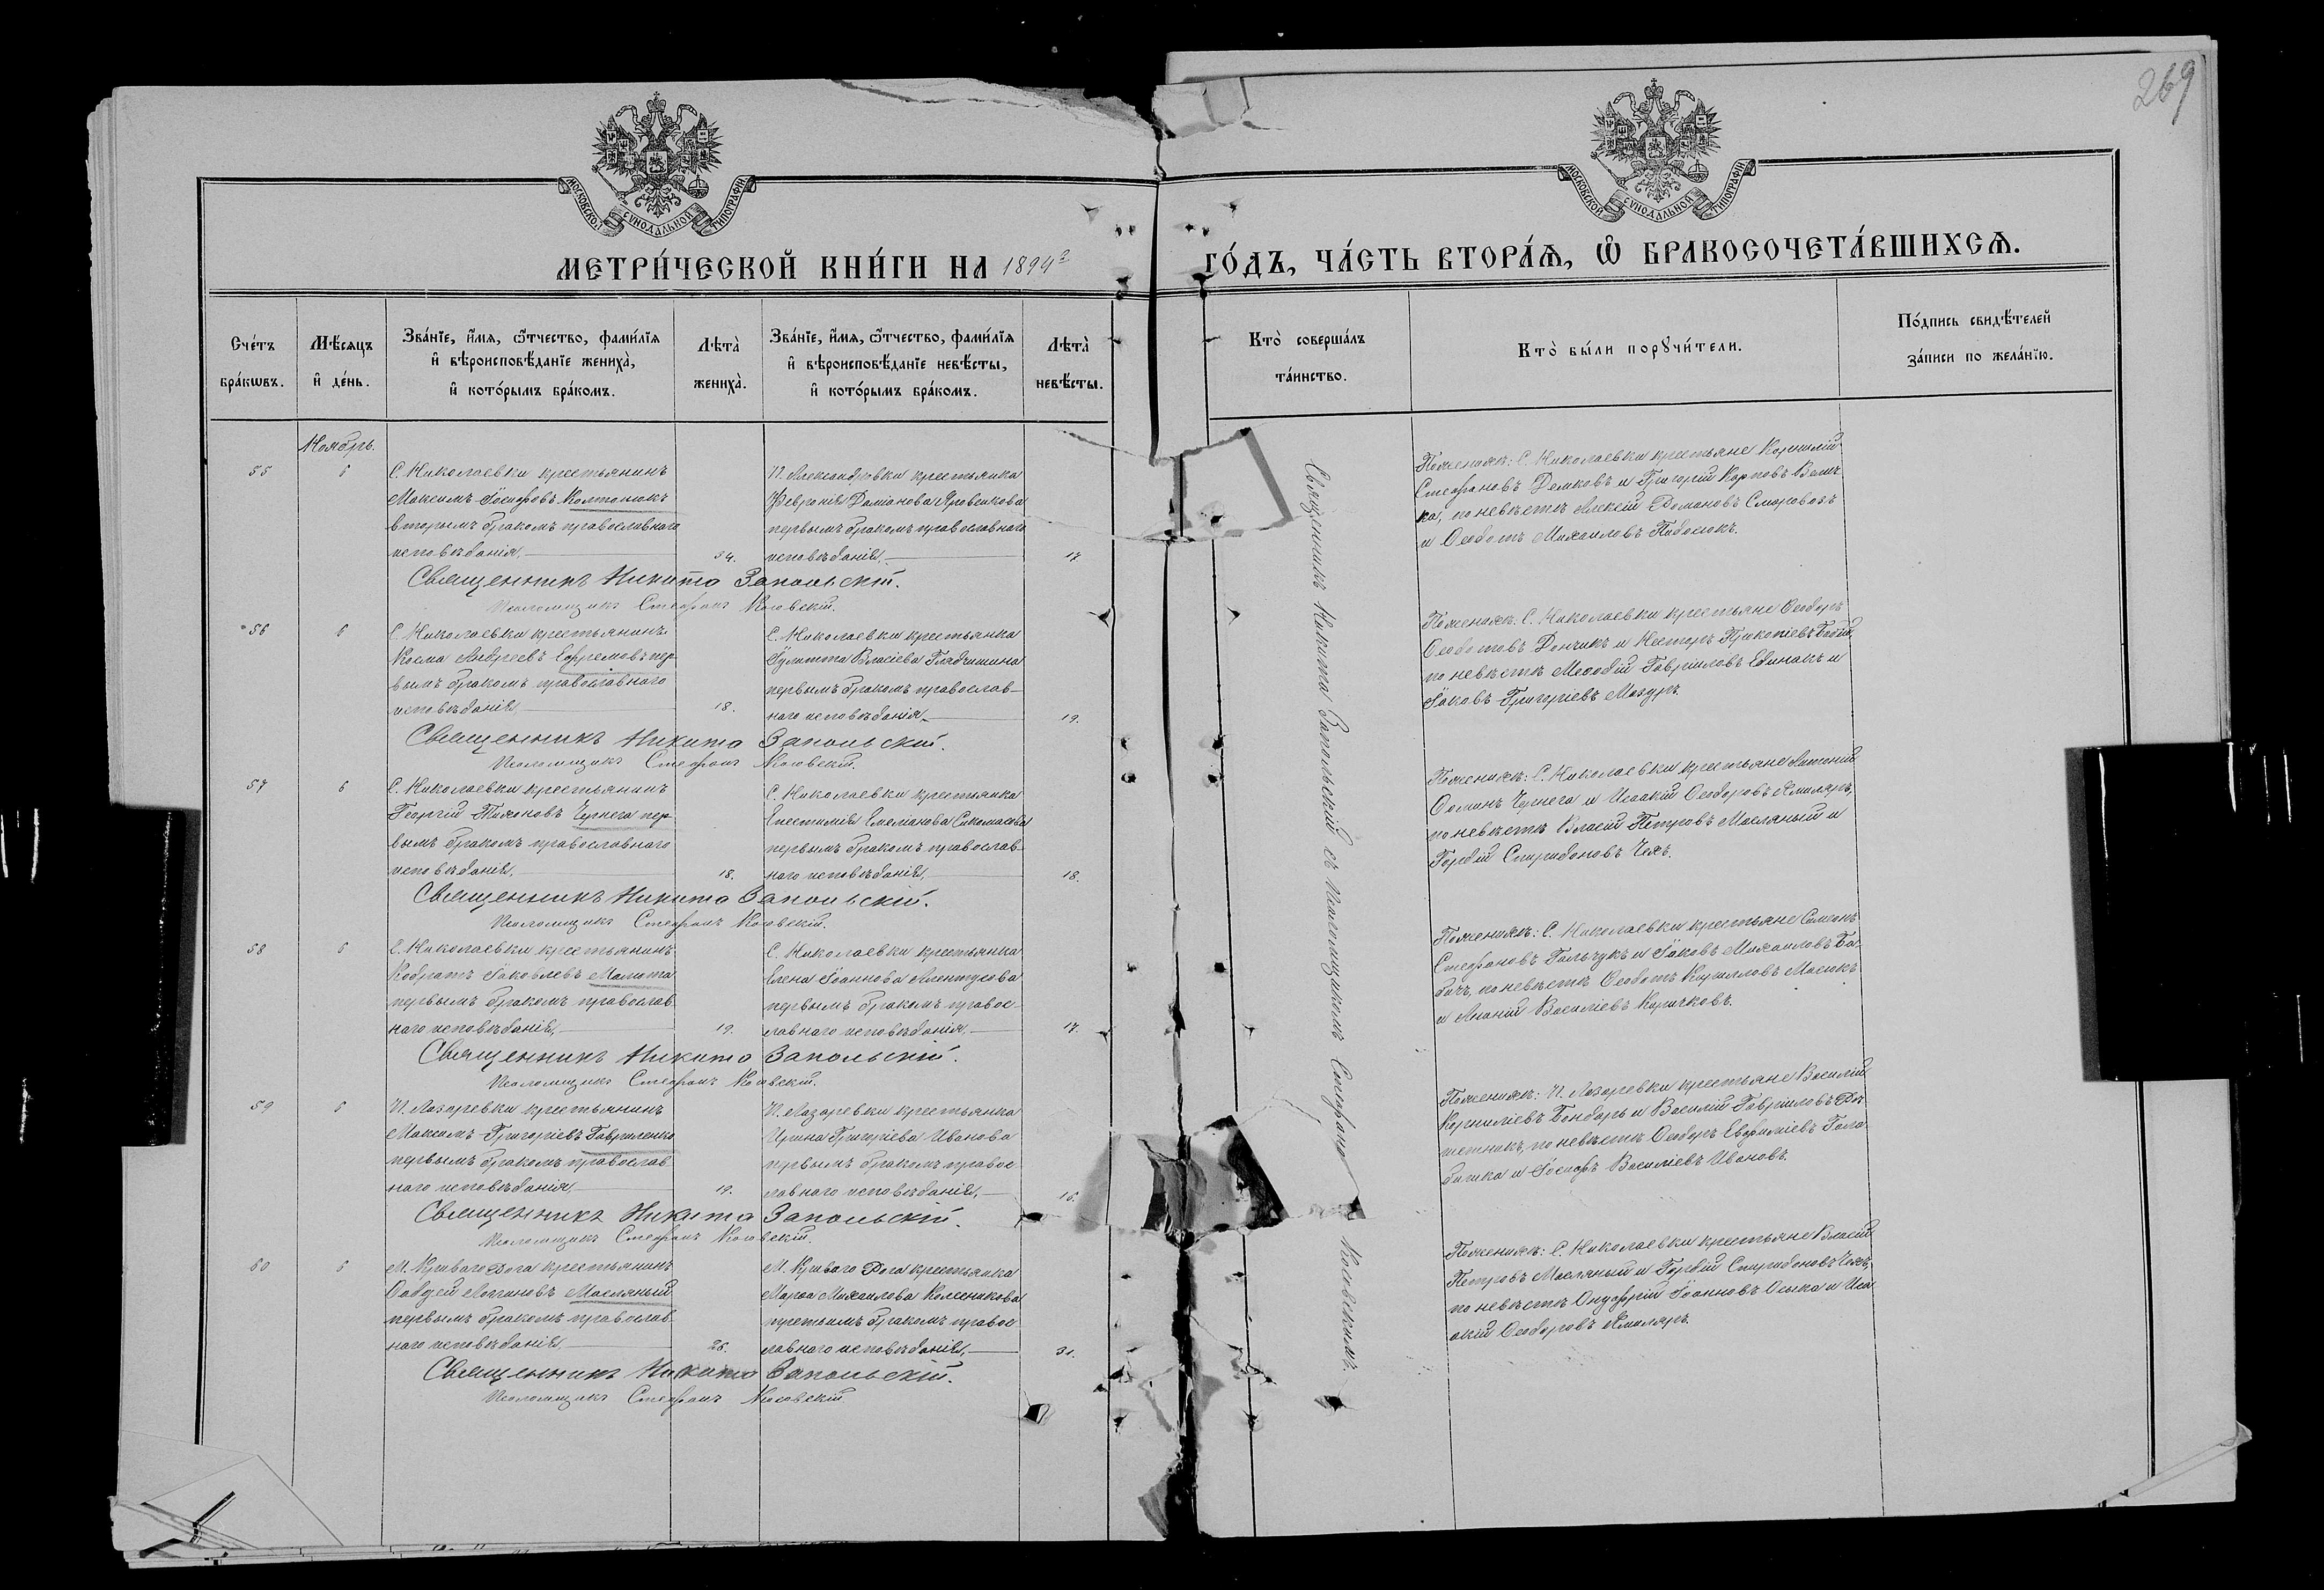 269
МОСКОВСКОЙ СѴНОДАЛЬНОЙ ТИПОГРАФІИ
МОСКОВСКОЙ СѴНОДАЛЬНОЙ ТИПОГРАФІИ
МЕТРИ́ЧЕСКОЙ КНИ́ГИ НА 1894
ГО́ДЪ, ЧА́СТЬ ВТОРА́Ѧ, Ѡ҆ БРАКОСОЧЕТА́ВШИХСѦ.
Сче́тъ бра́кѡвъ.
Мѣ́сяцъ и҆ де́нь.
Зва́нїе, и҆́мѧ, ѻ҆́тчество, фами́лїѧ
и҆ вѣроисповѣ́данїе жениха̀,
и҆ кото́рымъ бра́комъ.
Лѣта̀ жениха̀.
Зва́нїе, и҆́мѧ, ѻ҆́тчество, фами́лїѧ
и҆ вѣроисповѣ́данїе невѣ́сты,
и҆ кото́рымъ бра́комъ.
Лѣта̀ невѣ́сты.
Кто̀ соверша́лъ та́инство.
Кто̀ бы́ли порꙋчи́тели.
По́дпись свидѣ́телей за́писи по жела́нїю.
Ноябрь.
55
6
С. Николаевки крестьянинъ
Максимъ Іосифовъ Колтонюкъ
вторымъ бракомъ православнаго
исповѣданія.
34.
П. Александровки крестьянка
Февронія Даміанова Яровенкова
первымъ бракомъ православнаго
исповѣданія.
17.
Поженихѣ: С. Николаевки крестьяне Корнилій
Стефановъ Демковъ и Григорій Карповъ
по невѣстѣ Алексій Домановъ
и Ѳеодотъ Михаиловъ
Священникъ Никита Запольскій.
Псаломщикъ Стефанъ Косовскій.
56
6
С. Николаевки крестьянинъ
Косма Андреевъ Ефремовъ пер
вымъ бракомъ православнаго
исповѣданія
18.
С. Николаевки крестьянка
Іулитта Власіева Гладчишина
первымъ бракомъ православ-
наго исповѣданія.
19.
Поженихѣ: С. Николаевки крестьяне Ѳеодоръ
Ѳеодотовъ Дончикъ и Несторъ Прокопіевъ
по невѣстѣ Меѳодій Гавріиловъ Единакъ и
Іаковъ Григоріевъ Мазуръ.
Священникъ Никита Запольскій.
Псаломщикъ Стефанъ Косовскій.
57
6
С. Николаевки крестьянинъ
Георгій Тихоновъ Чернега пер
вымъ бракомъ православнаго
исповѣданія.
18.
С. Николаевки крестьянка
Епистимія Емеліанова
первымъ бракомъ православ-
наго исповѣданія.
18.
Поженихѣ: С. Николаевки крестьяне Антоній
Ѳоминъ Чернега и Исаакій Ѳеодоровъ
по невѣстѣ Власій Петровъ Масляный и
Гордій Спиридоновъ Чехъ.
Священникъ Никита Запольскій.
Псаломщикъ Стефанъ Косовскій.
58
6
С. Николаевки крестьянинъ
Кодратъ Іаковлевъ Малюта
первымъ бракомъ православ
наго исповѣданія.
19.
С. Николаевки крестьянка
Елена Іоаннова
первымъ бракомъ правос-
лавнаго исповѣданія.
17.
Поженихѣ: С. Николаевки крестьяне Симеонъ
Стефановъ Гальчукъ и Іаковъ Михаиловъ Ба-
бичъ, по невѣстѣ Ѳеодотъ Кирилловъ Масюкъ
и Ананій Василіевъ Киричковъ.
Священникъ Никита Запольскій.
Псаломщикъ Стефанъ Косовскій.
59
6
П. Лазаревки крестьянинъ
Максимъ Григоріевъ Гавриленко
первымъ бракомъ православ
наго исповѣданія.
19.
П. Лазаревки крестьянка
Ирина Григоріева Иванова
первымъ бракомъ правос
лавнаго исповѣданія.
16.
Поженихѣ: П. Лазаревки крестьяне Василій
Корниліевъ Бондарь и Василій Гавріиловъ
по невѣстѣ Ѳеодоръ Евфиміевъ
и Іосифъ Василіевъ Ивановъ.
Священникъ Никита Запольскій.
Псаломщикъ Стефанъ Косовскій.
60
6
М. Криваго Рога крестьянинъ
Ѳаддей Логиновъ Масляный
первымъ бракомъ православ
наго исповѣданія.
26.
М. Криваго Рога крестьянка
Марѳа Михаилова Колесникова
третьимъ бракомъ правос
лавнаго исповѣданія.
31.
Поженихѣ: С. Николаевки крестьяне Власій
Петровъ Масляный и Гордій Спиридоновъ Чехъ,
по невѣстѣ Онуфрій Іоанновъ Осыка и Иса
акій Ѳеодоровъ
Священникъ Никита Запольскій.
Псаломщикъ Стефанъ Косовскій
Священникъ Никита Запольскій съ Псаломщикомъ Стефаномъ Косовскимъ.